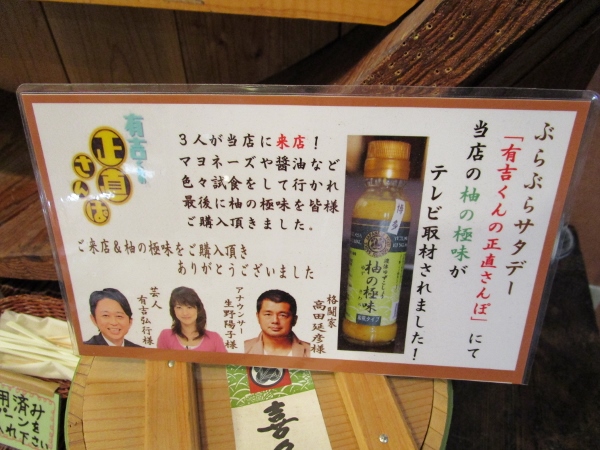 ぶらぶらサタデー
「有吉くんの正直さんぽ」にて
当店の柚の極味が
テレビ取材されました!
有吉くんの
正直
さんぽ
3人が当店に来店!
マヨネーズや醤油など
色々試食をして行かれ
最後に柚の極味を皆様
ご購入頂きました。
ご来店&柚の極味をご購入頂き
ありがとうございました
芸人
有吉弘行様
アナウンサー
生野陽子様
格闘家
高田延彦様
柚の極味
用済み
ーンを
入れ下さい
喜